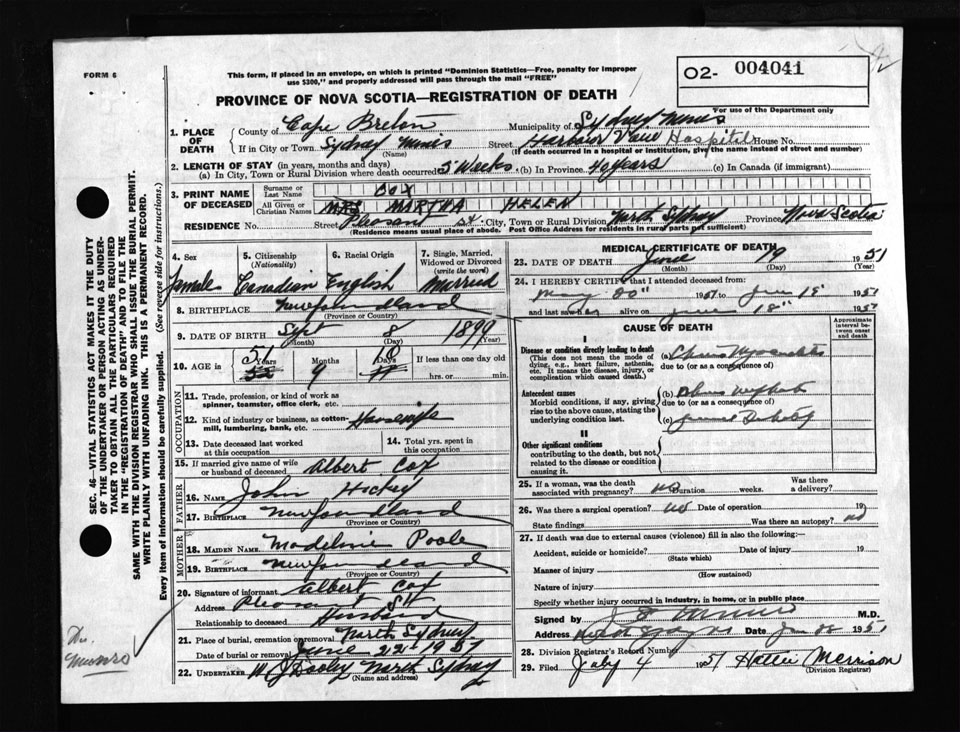 FORM 6
This form, if placed in an envelope, on which is printed "Dominion Statistics—Free, penalty for improper
use $300," and properly addressed will pass through the mail "FREE"
O2- 004041
For use of the Department only
PROVINCE OF NOVA SCOTIA—REGISTRATION OF DEATH
1. PLACE OF DEATH
County of Cape Breton Municipality of Sydney Mines
If in City or Town Sydney Mines Street Harbor View Hospital House No.
(Name) (If death occurred in a hospital or institution, give the name instead of street and number)
2. LENGTH OF STAY (in years, months and days)
(a) In City, Town or Rural Division where death occurred 5 Weeks (b) In Province 40 years (c) In Canada (if immigrant)
3. PRINT NAME OF DECEASED
Surname or Last Name COX
All Given or Christian Names MRS MARTHA HELEN
RESIDENCE No. Street Pleasant St. City, Town or Rural Division North Sydney Province Nova Scotia
(Residence means usual place of abode. Post Office Address for residents in rural parts not sufficient)
4. Sex
Female
5. Citizenship
(Nationality)
Canadian
6. Racial Origin
English
7. Single, Married, Widowed or Divorced
(write the word)
Married
8. BIRTHPLACE Newfoundland
(Province or Country)
9. DATE OF BIRTH Sept 8 1899
(Month) (Day) (Year)
10. AGE in
Years Months Days If less than one day old
51 9
52
hrs. or min.
OCCUPATION
11. Trade, profession, or kind of work as
spinner, teamster, office clerk, etc.
12. Kind of industry or business, as cotton-
mill, lumbering, bank, etc. Housewife
13. Date deceased last worked
at this occupation
14. Total yrs. spent in
this occupation
15. If married give name of wife
or husband of deceased Albert Cox
FATHER
16. NAME John Hickey
17. BIRTHPLACE Newfoundland
(Province or Country)
MOTHER
18. MAIDEN NAME Madeline Poole
19. BIRTHPLACE Newfoundland
(Province or Country)
20. Signature of informant Albert Cox
Address Pleasant St
Relationship to deceased Husband
21. Place of burial, cremation or removal North Sydney
Date of burial or removal June 22 1951
22. UNDERTAKER W J Dooley North Sydney
(Name and address)
MEDICAL CERTIFICATE OF DEATH
23. DATE OF DEATH June 19 1951
(Month) (Day) (Year)
24. I HEREBY CERTIFY that I attended deceased from:
May 20" 1951 to June 18" 1951
and last saw her alive on June 18" 1951
CAUSE OF DEATH
Approximate interval between onset and death
I
Disease or condition directly leading to death
(This does not mean the mode of
dying, e.g., heart failure, asthenia,
etc. It means the disease, injury, or
complication which caused death.)
(a) Chronic Myocarditis
due to (or as a consequence of)
Antecedent causes
Morbid conditions, if any, giving
rise to the above cause, stating the
underlying condition last.
(b) Chronic
due to (or as a consequence of)
(c)
II
Other significant conditions
contributing to the death, but not
related to the disease or condition
causing it.
25. If a woman, was the death
associated with pregnancy? no Duration weeks. Was there a delivery?
26. Was there a surgical operation? no Date of operation 19
State findings Was there an autopsy? no
27. If death was due to external causes (violence) fill in also the following:—
Accident, suicide or homicide? Date of injury 19
(State which)
Manner of injury
(How sustained)
Nature of injury
Specify whether injury occurred in industry, in home, or in public place
Signed by M.D.
Address Date 1951
28. Division Registrar's Record Number
29. Filed July 4 1951 Hattie Merrison
(Division Registrar)
SEC. 46—VITAL STATISTICS ACT MAKES IT THE DUTY
OF THE UNDERTAKER OR PERSON ACTING AS UNDER-
TAKER TO OBTAIN ALL THE PARTICULARS REQUIRED
IN THE "REGISTRATION OF DEATH" AND TO FILE THE
SAME WITH THE DIVISION REGISTRAR WHO SHALL ISSUE THE BURIAL PERMIT.
WRITE PLAINLY WITH UNFADING INK. THIS IS A PERMANENT RECORD.
Every item of information should be carefully supplied. (See reverse side for instructions.)
Dr.
Munro